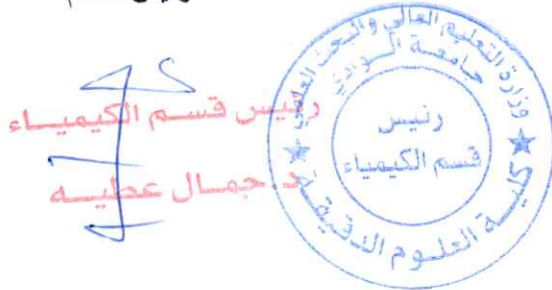 رئيس قسم الكيميـاء
د. جمـال عطيـــه
وزارة التعليم العالي والبحث العلمي
جامعـة الـوادي
رئيس
قسم الكيمياء
كليـة العلـوم الدقيقة